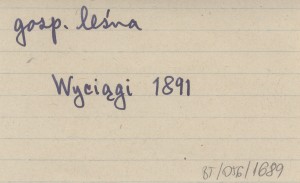 gosp. leśna
Wyciągi 1891
BT/056/1689